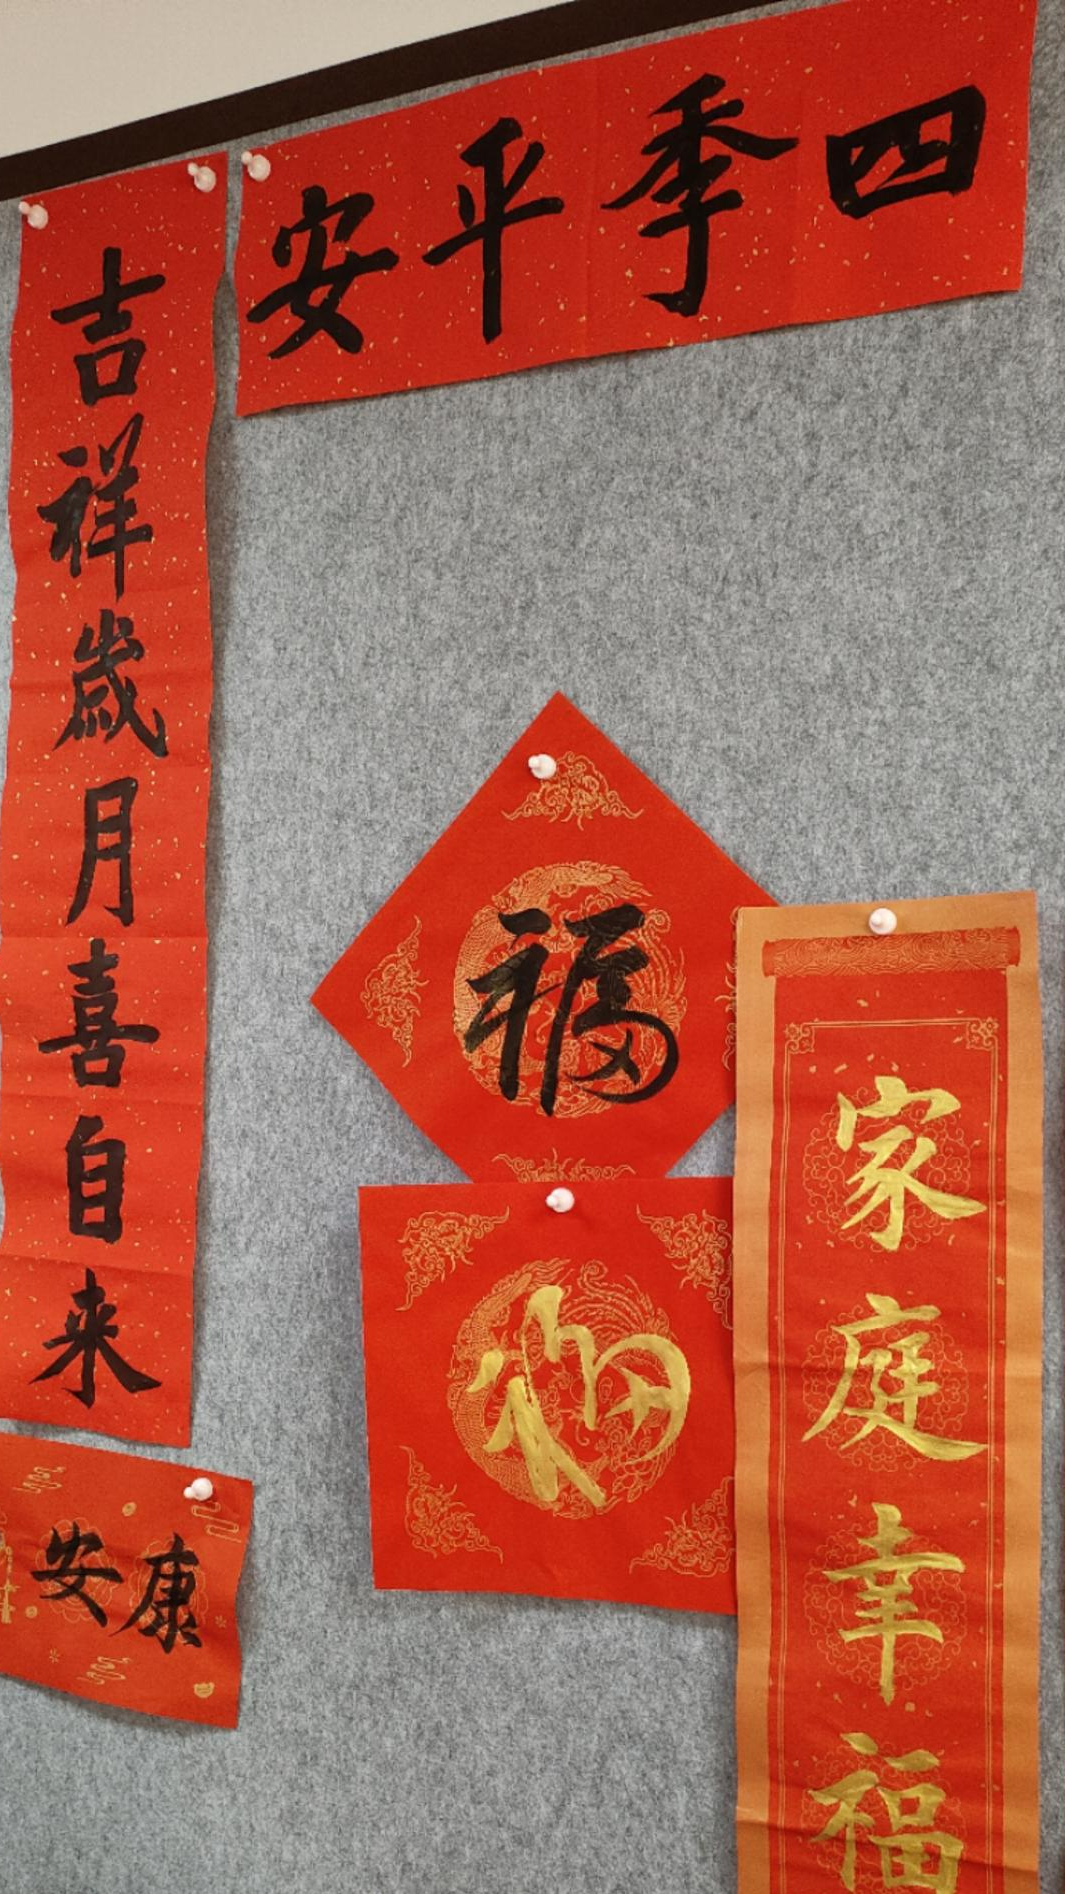 四季平安
吉祥歲月喜自来
福
福
家庭幸福
安康